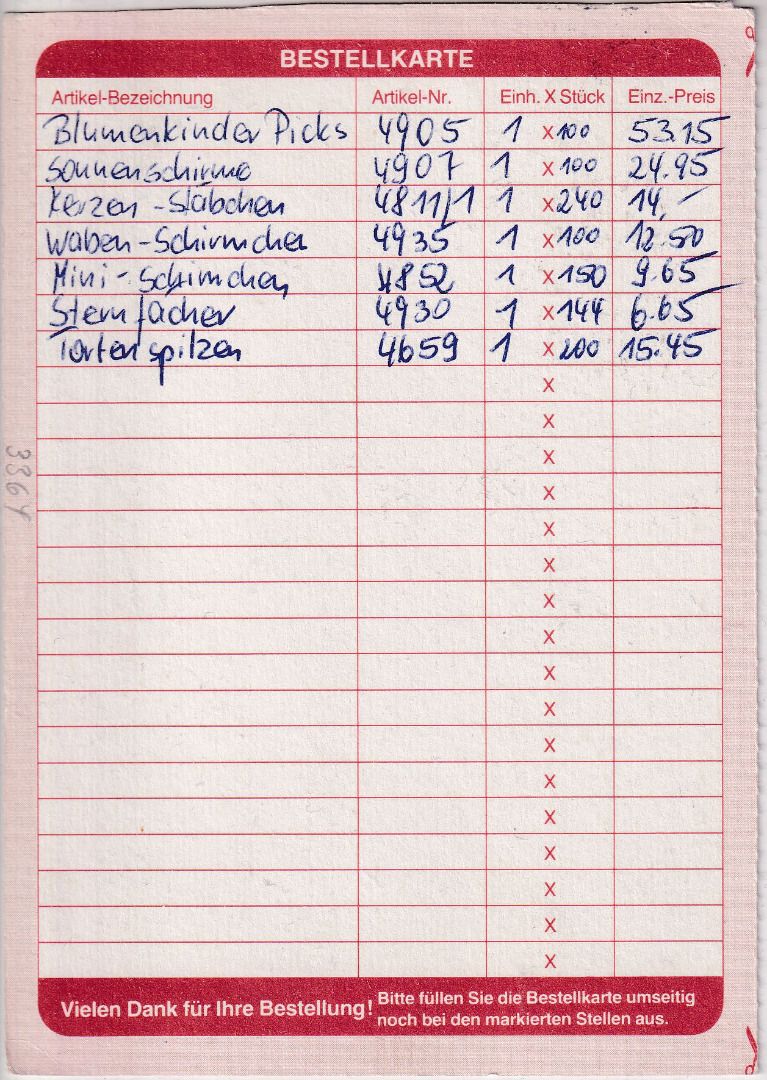 BESTELLKARTE
Artikel-Bezeichnung Artikel-Nr. Einh. X Stück Einz.-Preis
Blumenkinder Picks 4905 1 x100 53.15
Sonnenschirme 4907 1 x100 24.95
Kerzen-Stäbchen 4811/1 1 x240 14,-
Waben-Schirmchen 4935 1 x100 12.50
Mini-Schirmchen 4852 1 x150 9.65
Sternfächer 4930 1 x144 6.65
Tortenspitzen 4659 1 x200 15.45
x
x
x
x
x
x
x
x
x
x
x
x
x
x
x
x
x
3364
Vielen Dank für Ihre Bestellung! Bitte füllen Sie die Bestellkarte umseitig
noch bei den markierten Stellen aus.